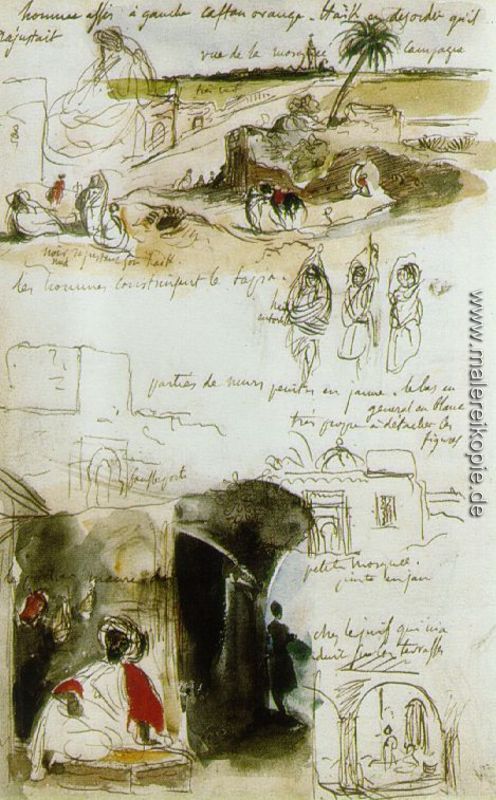 homme assis à gauche caftan orange. Haïk en desordre qu'il
rajustait
vue de la mosquée
Campagne
très vert
noir rajustant son haïk
nud
des hommes construisent le tapia.
parties de murs peintes en jaune. le bas en
general en blanc
très propre à détacher les
figures
petite mosquée.
peinte en jau
chez le juif qui m'a
duit sur les terrasses
www.malereikopie.de